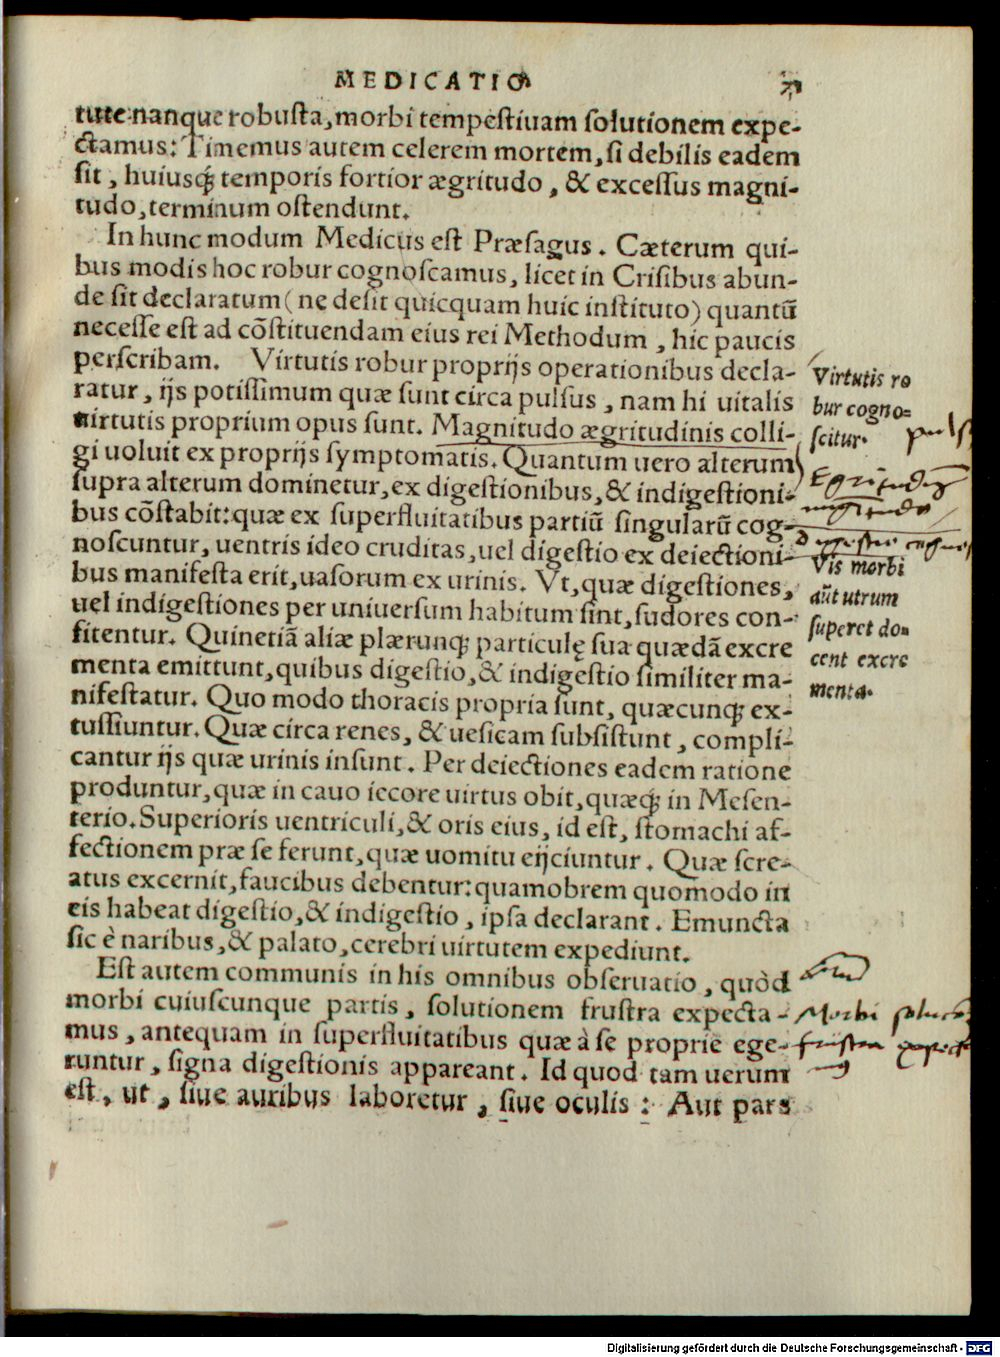 MEDICATIO
tute nanque robusta, morbi tempestiuam solutionem expe-
ctamus: Timemus autem celerem mortem, si debilis eadem
sit, huiusq́; temporis fortior ægritudo, & excessus magni-
tudo, terminum ostendunt.
In hunc modum Medicus est Præsagus. Cæterum qui-
bus modis hoc robur cognoscamus, licet in Crisibus abun-
de sit declaratum (ne desit quicquam huic instituto) quantū
necesse est ad cōstituendam eius rei Methodum, hic paucis
perscribam. Virtutis robur proprijs operationibus decla-
ratur, ijs potissimum quæ sunt circa pulsus, nam hi uitalis
uirtutis proprium opus sunt. Magnitudo ægritudinis colli-
gi uoluit ex proprijs symptomatis. Quantum uero alterum
supra alterum dominetur, ex digestionibus, & indigestioni-
bus cōstabit: quæ ex superfluitatibus partiū singularū cog-
noscuntur, uentris ideo cruditas, uel digestio ex deiectioni-
bus manifesta erit, uasorum ex urinis. Vt, quæ digestiones,
uel indigestiones per uniuersum habitum sint, sudores con-
fitentur. Quinetiā aliæ plærunq; particulę sua quædā excre
menta emittunt, quibus digestio, & indigestio similiter ma-
nifestatur. Quo modo thoracis propria sunt, quæcunq; ex-
tussiuntur. Quæ circa renes, & uesicam subsistunt, compli-
cantur ijs quæ urinis insunt. Per deiectiones eadem ratione
produntur, quæ in cauo iecore uirtus obit, quæq́; in Mesen-
terio. Superioris uentriculi, & oris eius, id est, stomachi af-
fectionem præ se ferunt, quæ uomitu eijciuntur. Quæ scre-
atus excernit, faucibus debentur: quamobrem quomodo in
eis habeat digestio, & indigestio, ipsa declarant. Emuncta
sic è naribus, & palato, cerebri uirtutem expediunt.
Est autem communis in his omnibus obseruatio, quòd
morbi cuiuscunque partis, solutionem frustra expecta-
mus, antequam in superfluitatibus quæ à se proprie ege-
runtur, signa digestionis appareant. Id quod tam uerum
est, ut, siue auribus laboretur, siue oculis: Aut pars
Virtutis ro
bur cogno=
scitur.
Vis morbi
aūt utrum
superet do=
cent excre
menta.
Morbi
frustra
Digitalisierung gefördert durch die Deutsche Forschungsgemeinschaft - DFG